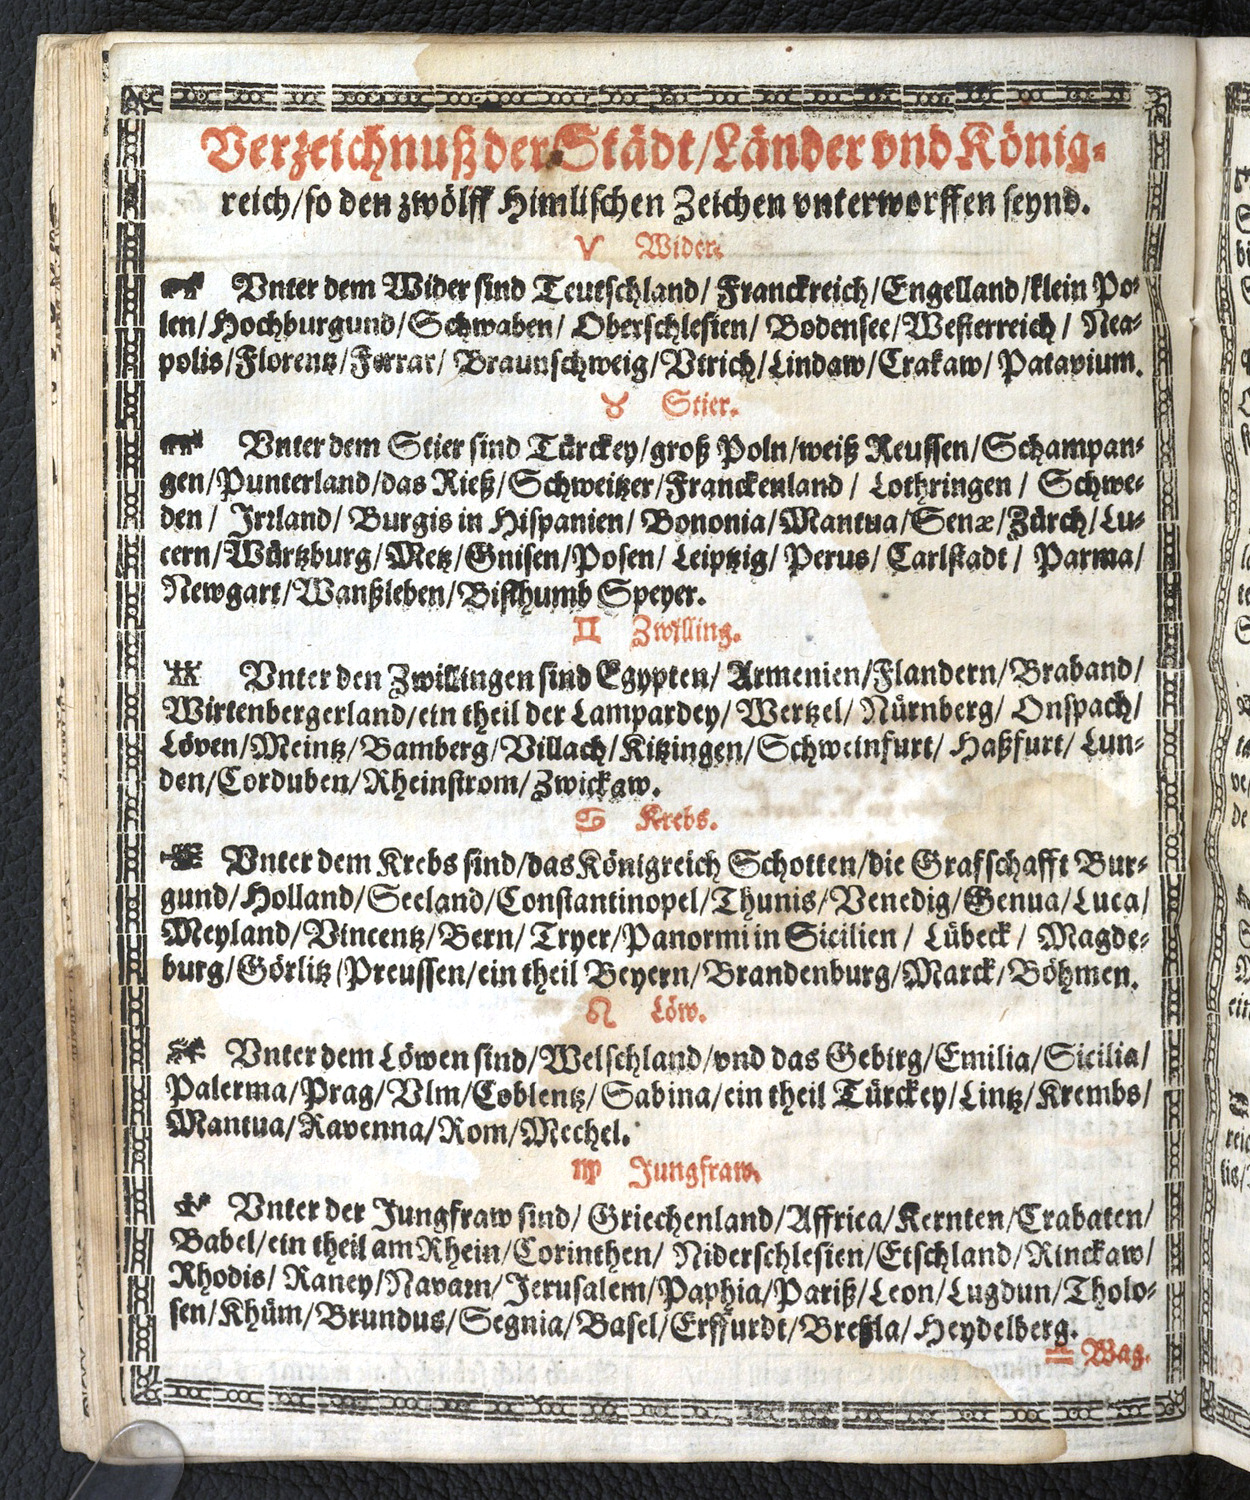 Verzeichnuß der Städt/Länder vnd König-
reich/so den zwölff Himlischen Zeichen vnterworffen seynd.
♈ Wider.
Vnter dem Wider sind Teutschland/ Franckreich/Engelland/klein Po-
len/Hochburgund/Schwaben/ Oberschlesien/ Bodensee/Westerreich/ Nea-
polis/Florentz/Farrar/ Braunschweig/Vtrich/Lindaw/Crakaw/Patavium.
♉ Stier.
Vnter dem Stier sind Türckey/groß Poln/weiß Reussen/Schampan-
gen/Punterland/das Rieß/Schweitzer/Franckenland/ Lothringen/ Schwe-
den/ Irrland/ Burgis in Hispanien/ Bononia/Mantua/Senæ/Zürch/Lu-
cern/Würtzburg/Metz/Gnisen/Posen/ Leiptzig/ Perus/ Carlstadt/ Parma/
Newgart/Wanßleben/Bisthumb Speyer.
♊ Zwilling.
Vnter den Zwillingen sind Egypten/ Armenien/Flandern/Braband/
Wirtenbergerland/ein theil der Lampardey/ Wertzel/ Nürnberg/ Onspach/
Löven/Meintz/Bamberg/Villach/Kitzingen/Schweinfurt/ Haßfurt/ Lun-
den/Corduben/Rheinstrom/Zwickaw.
♋ Krebs.
Vnter dem Krebs sind/das Königreich Schotten/die Grafschafft Bur-
gund/Holland/Seeland/Constantinopel/Thunis/Venedig/Genua/Luca/
Meyland/Vincentz/Bern/Tryer/Panormi in Sicilien/ Lübeck/ Magde-
burg/Görlitz/Preussen/ein theil Beyern/Brandenburg/Marck/Böhmen.
♌ Löw.
Vnter dem Löwen sind/Welschland/vnd das Gebirg/Emilia/Sicilia/
Palerma/Prag/Vlm/Coblentz/Sabina/ein theil Türckey/Lintz/Krembs/
Mantua/Ravenna/Rom/Mechel.
♍ Jungfraw.
Vnter der Jungfraw sind/ Griechenland/Affrica/Kernten/Crabaten/
Babel/ein theil am Rhein/Corinthen/ Niderschlesien/Etschland/Rinckaw/
Rhodis/ Raney/Navarn/Jerusalem/Paphia/Pariß/Leon/Lugdun/Tholo-
sen/Khüm/Brundus/Segnia/Basel/Erffurdt/Breßla/Heydelberg.
♎ Wag.